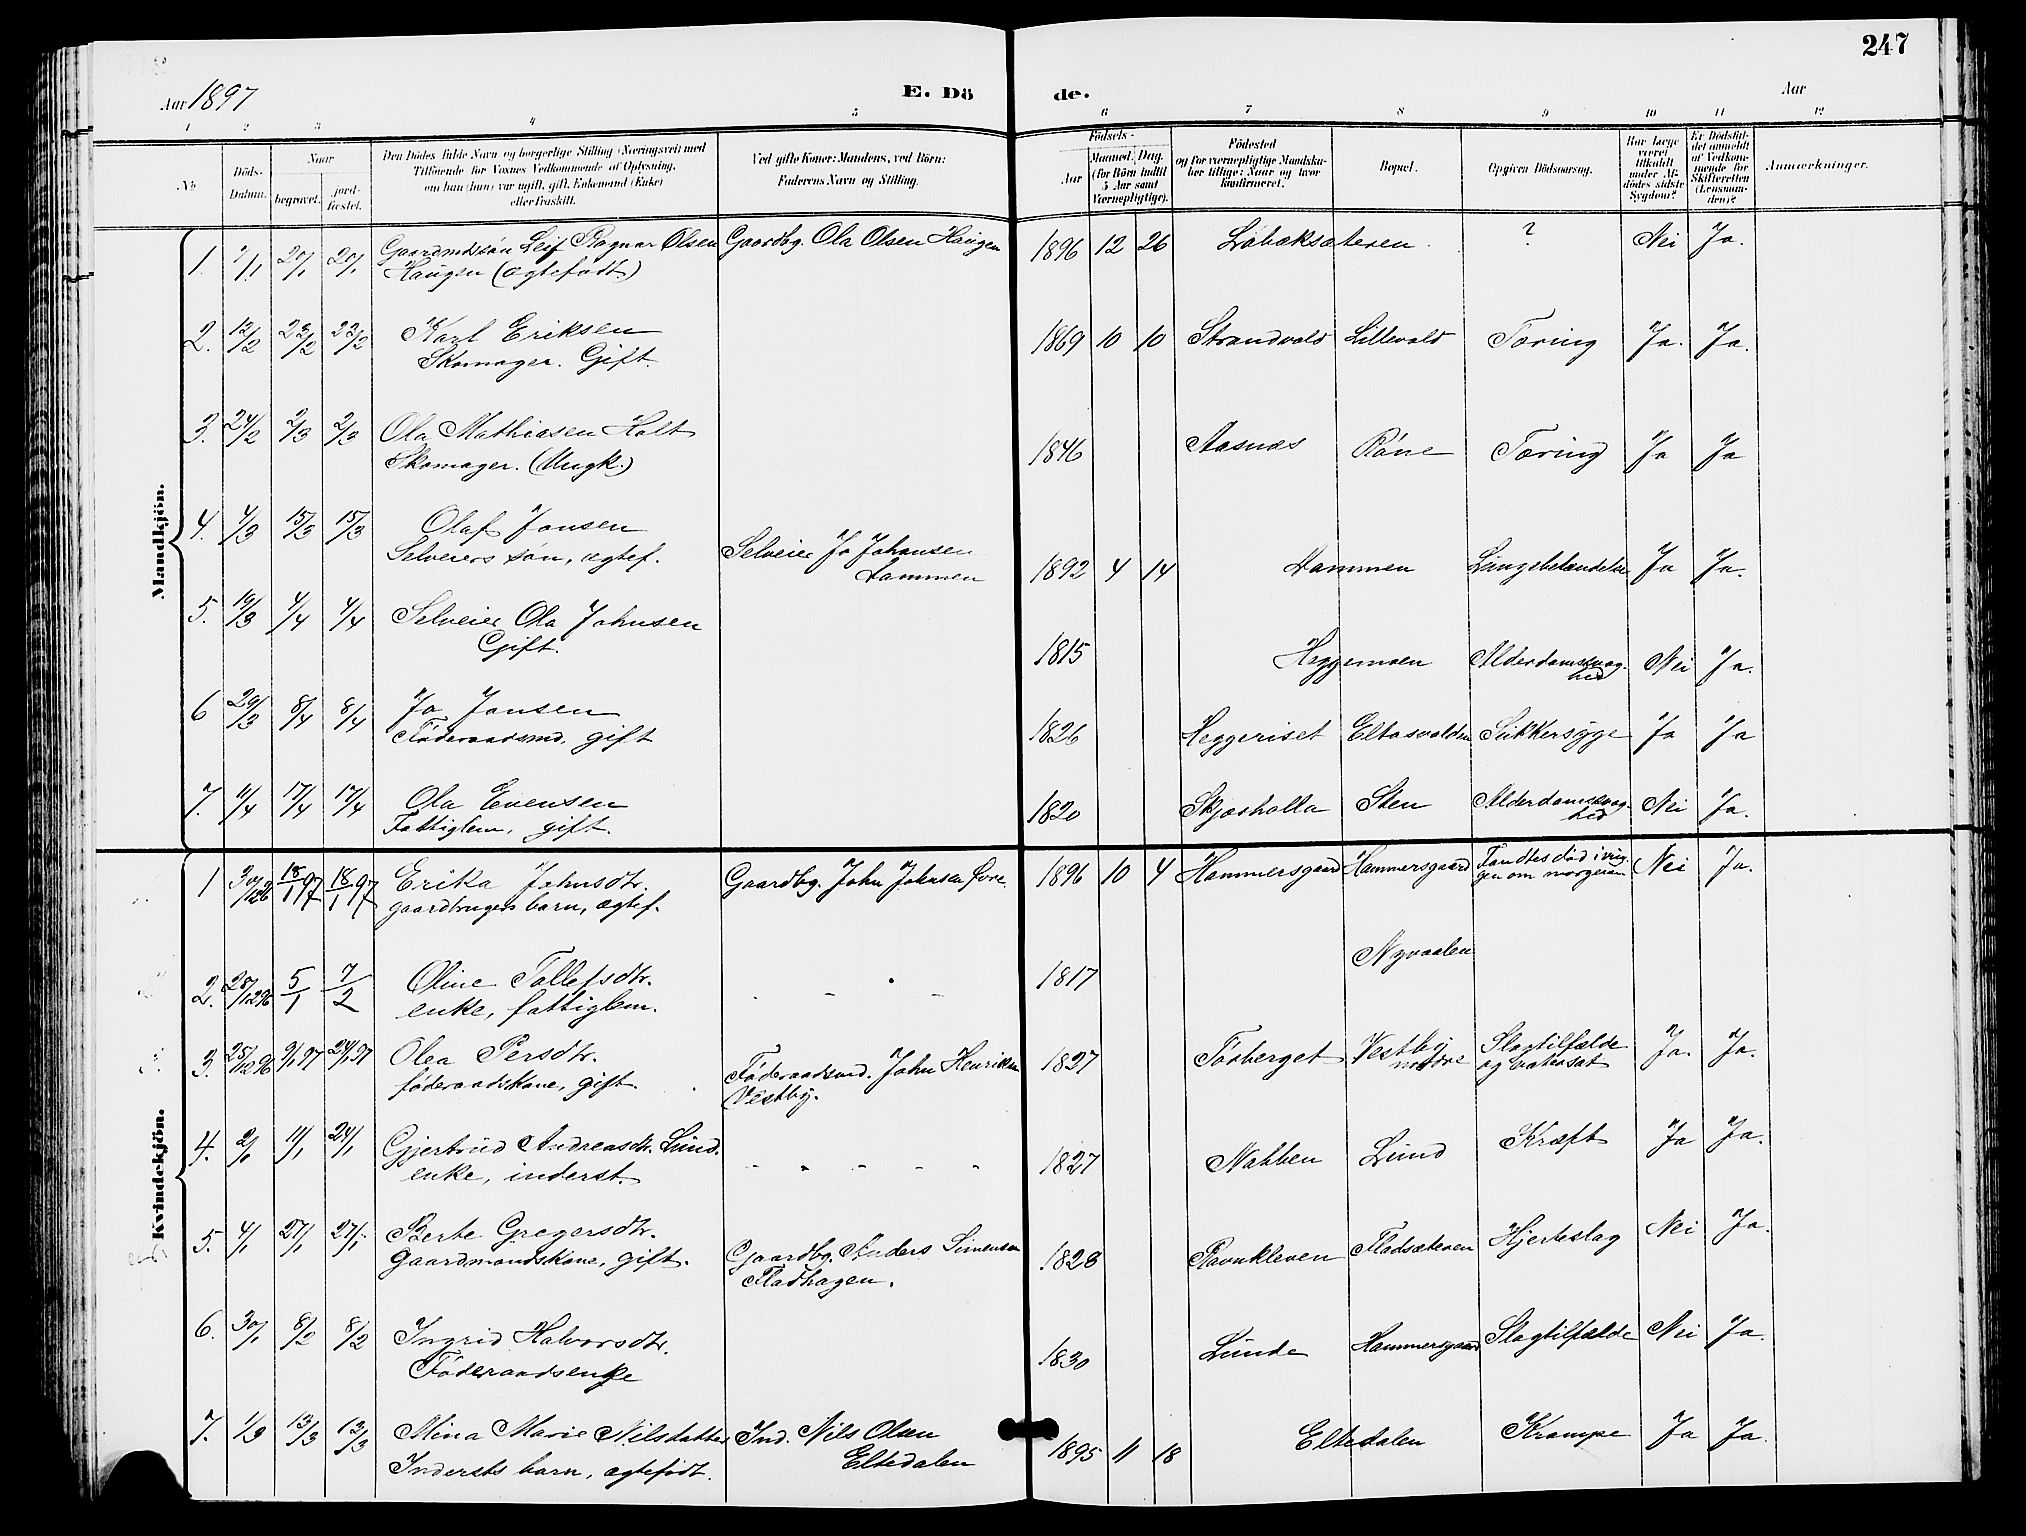 247
Aar 1897
E. Dö de.
Aar
1 2 3 4 5 6 7 8 9 10 11 12
No
Döds-Datum.
Naar
begravet.
jord-fæstet.
Den Dödes fulde Navn og borgerlige Stilling (Næringsvei) med
Tilföiende for Voxnes Vedkommende af Oplysning,
om han (hun) var ugift, gift, Enkemand (Enke)
eller fraskilt.
Ved gifte Koner: Mandens, ved Börn:
Faderens Navn og Stilling.
Födsels-
Aar
Maaned. Dag.
(for Börn indtil
5 Aar samt
Værnepligtige).
Födested
og for værnepligtige Mandsku-
ber tillige: Naar og hvor
konfirmeret.
Bopæl.
Opgiven Dödsaarsag.
Har Læge
været
tilkaldt
under Af-
dödes sidste
Sygdom?
Er Dödsfal-
det anmeldt
af Vedkom-
mende for
Skifteretten
(Lensman-
den)?
Anmærkninger.
Mandkjön.
1. 1/1 20/1 20/1 Gaardmdssøn Leif Ragnar Olsen Gaardbg. Ola Olsen Haugen 1896 12 26 Løbæksæteren ? Nei Ja.
Haugen (ægtefødt)
2. 12/2 23/2 23/2 Karl Eriksen 1869 10 10 Strandvold Lillevold Tæring Ja. Ja.
Skomager. Gift.
3. 24/2 2/3 2/3 Ola Mathiasen Holt 1846 Aasnæs Røne Tæring Ja Ja
Skomager. (Ungk.)
4. 4/3 15/3 15/3 Olaf Jonsen
Selveiers søn, ægtef. Selveier Jo Johansen
Dammen 1892 4 14 Dammen Lungebetændelse Ja Ja.
5. 19/3 4/4 4/4 Selveier Ola Johnsen
Gift. 1815 Heggemoen Alderdomssvag-
hed Nei Ja.
6 29/3 8/4 8/4 Jo Jonsen
Føderaadsmd. gift 1826 Heggeriset Eltasvolden Sukkersyge Ja Ja
7. 11/4 17/4 17/4 Ola Evensen 1820 Skjæsholla Sten Alderdomssvag-
hed Nei Ja.
Fattiglem, gift.
Kvindekjön.
1 30/12 96 18/1 97 18/1 97 Erika Johnsdtr. Gaardbg. John Johnsen Øvre 1896 10 4 Hammersgaard Hammersgaard Fandtes død i vug-
gen om morgenen Nei Ja.
gaardbrugers barn, ægtef.
2. 28/12 96 5/1 7/2 Oline Tollefsdtr. 1817 Nyvaalen
enke, fattiglem.
3. 25/12 96 9/1 97 24/1 97 Olea Persdtr. Føderaadsmd. John Henriksen 1827 Fosberget Vestby
nordre Slagtilfælde
og vatersot Ja. Ja.
føderaadskone, gift. Vestby.
4. 2/1 11/1 24/1 Gjertrud Andreasdtr. Lund. 1827 Nabben Lund Kræft Ja Ja.
enke, inderst.
5. 4/1 27/1 27/1 Berte Gregersdtr.
gaardmandskone, gift. Gaardbg. Anders Simensen
Fladhagen. 1828 Ravnkleven Fladsæteren Hjerteslag Nei Ja.
6. 30/1 8/2 8/2 Ingrid Halvorsdtr. 1830 Lunde Hammersgaard Slagtilfælde Nei Ja.
Føderaadsenke
7. 1/3 13/3 13/3 Mina Marie Nilsdatter Ind. Nils Olsen
Eltedalen 1895 11 18 Eltedalen Krampe Ja Ja.
Indersts barn, ægtefødt.